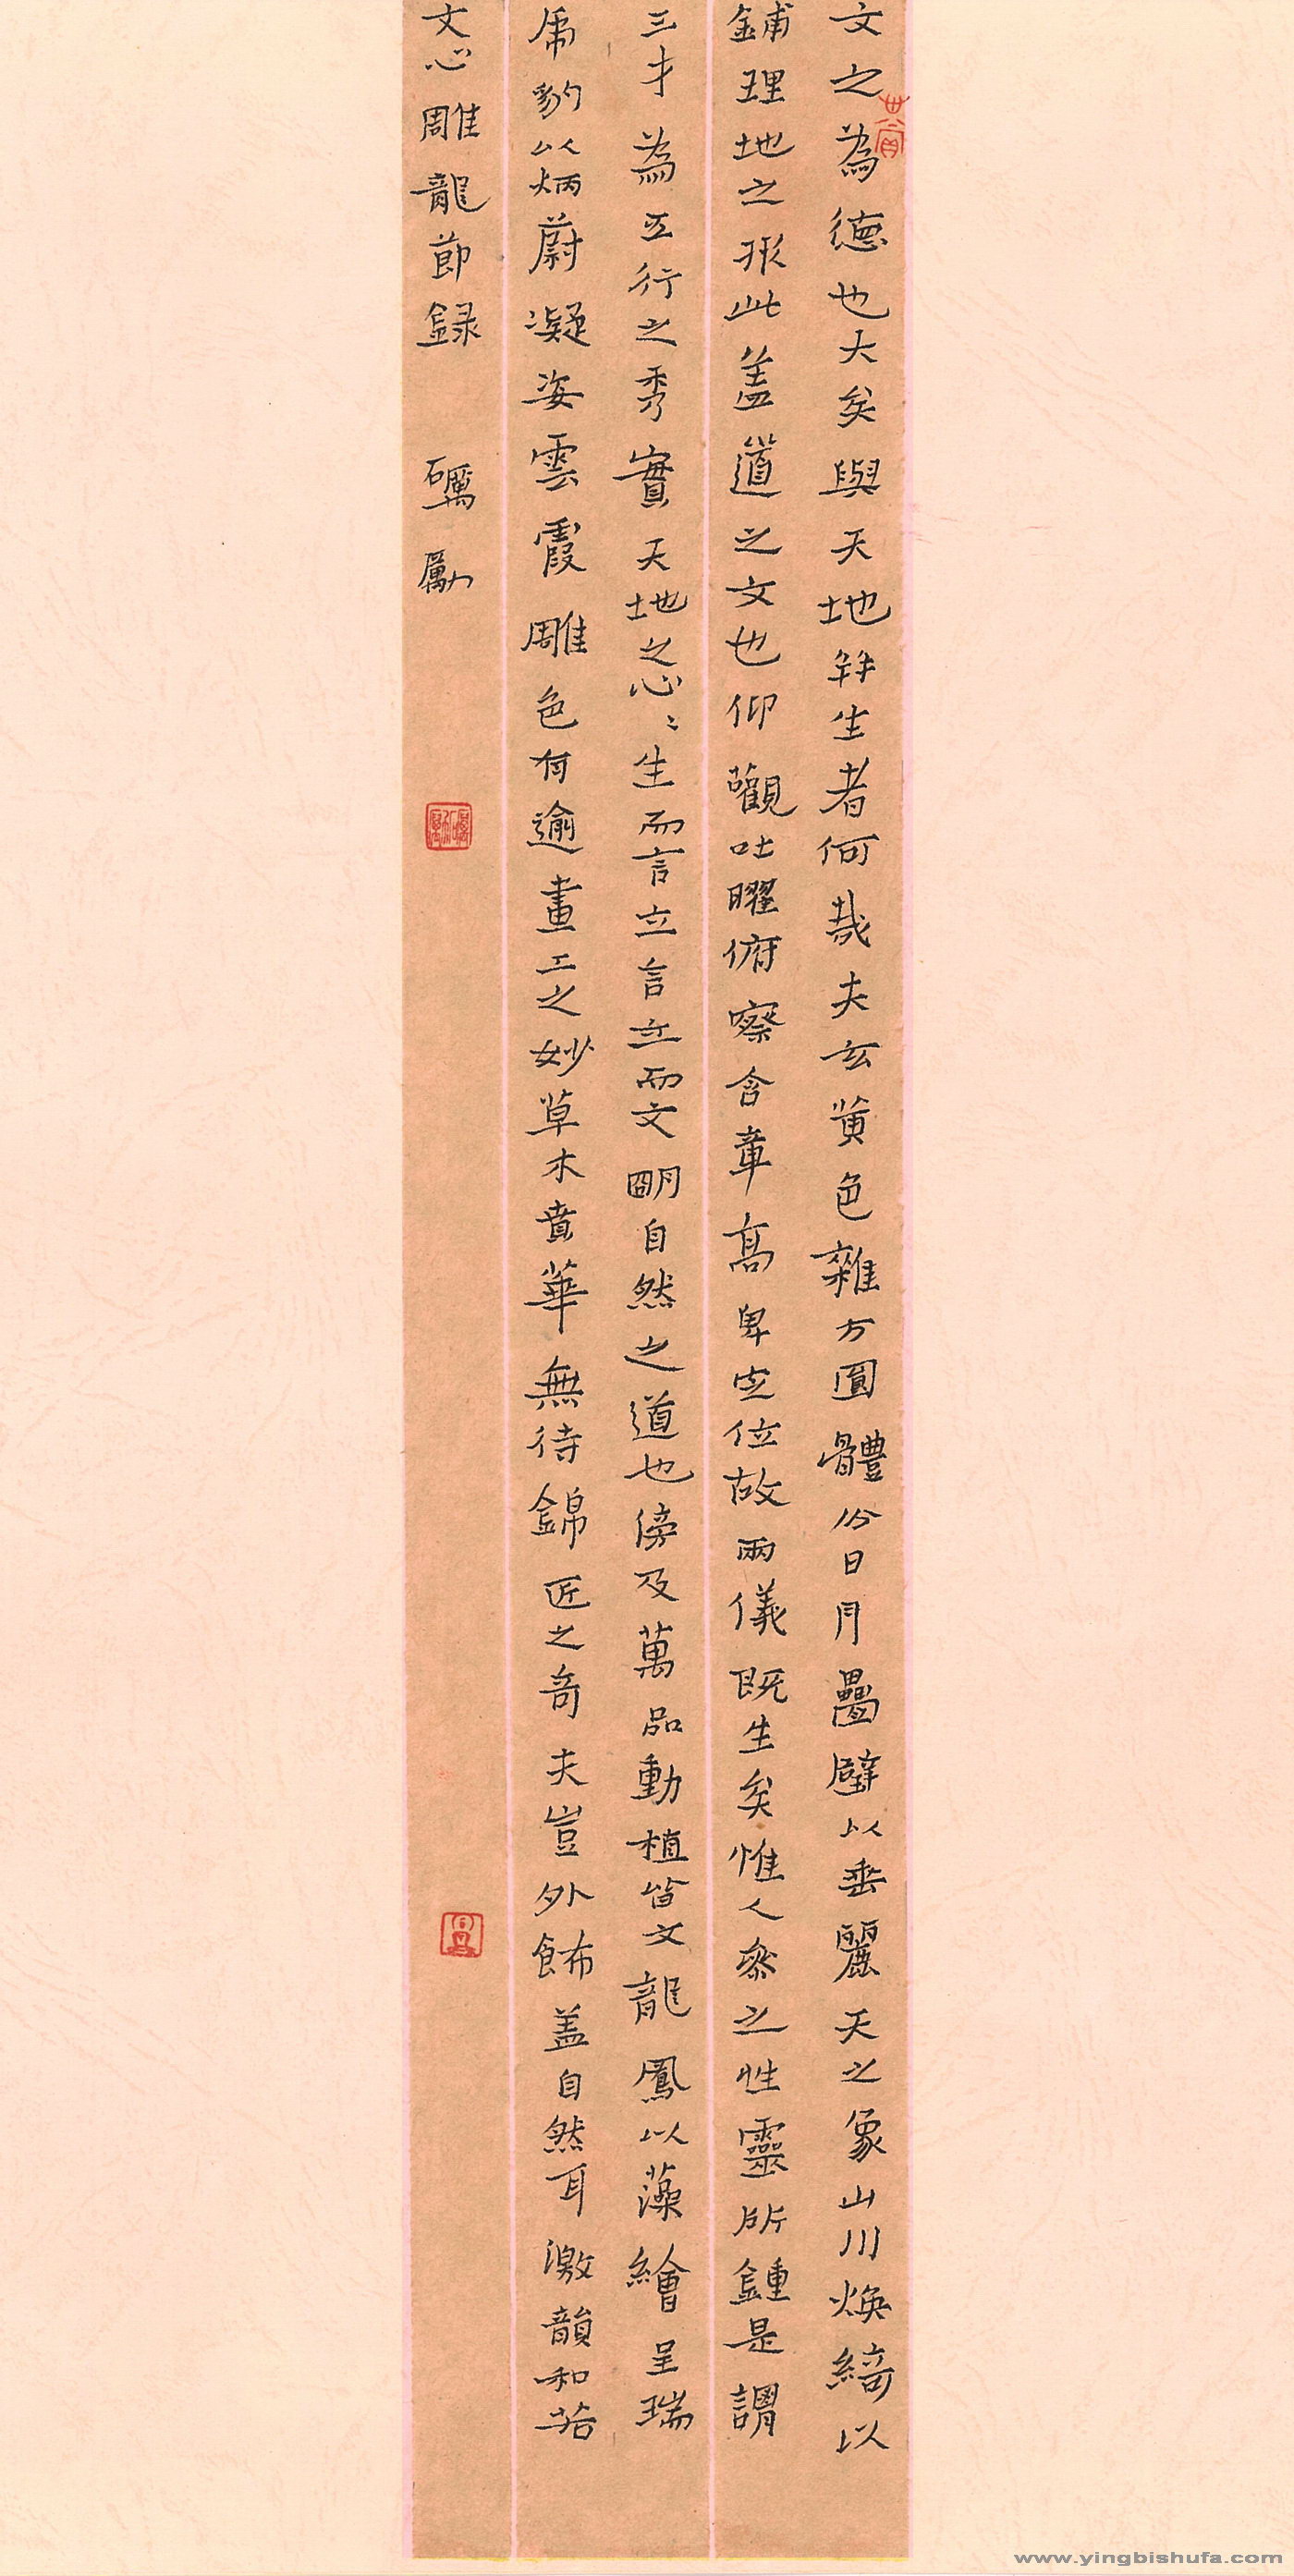 文之為德也大矣與天地并生者何哉夫玄黃色雜方圓體分日月疊璧以垂麗天之象山川煥綺以
鋪理地之形此蓋道之文也仰觀吐曜俯察含章高卑定位故兩儀既生矣惟人參之性靈所鍾是謂
三才為五行之秀實天地之心〻生而言立言立而文明自然之道也傍及萬品動植皆文龍鳳以藻繪呈瑞
虎豹以炳蔚凝姿雲霞雕色有逾畫工之妙草木賁華無待錦匠之奇夫豈外飾蓋自然耳激韻和若
文心雕龍節録 礪勵
www.yingbishufa.com